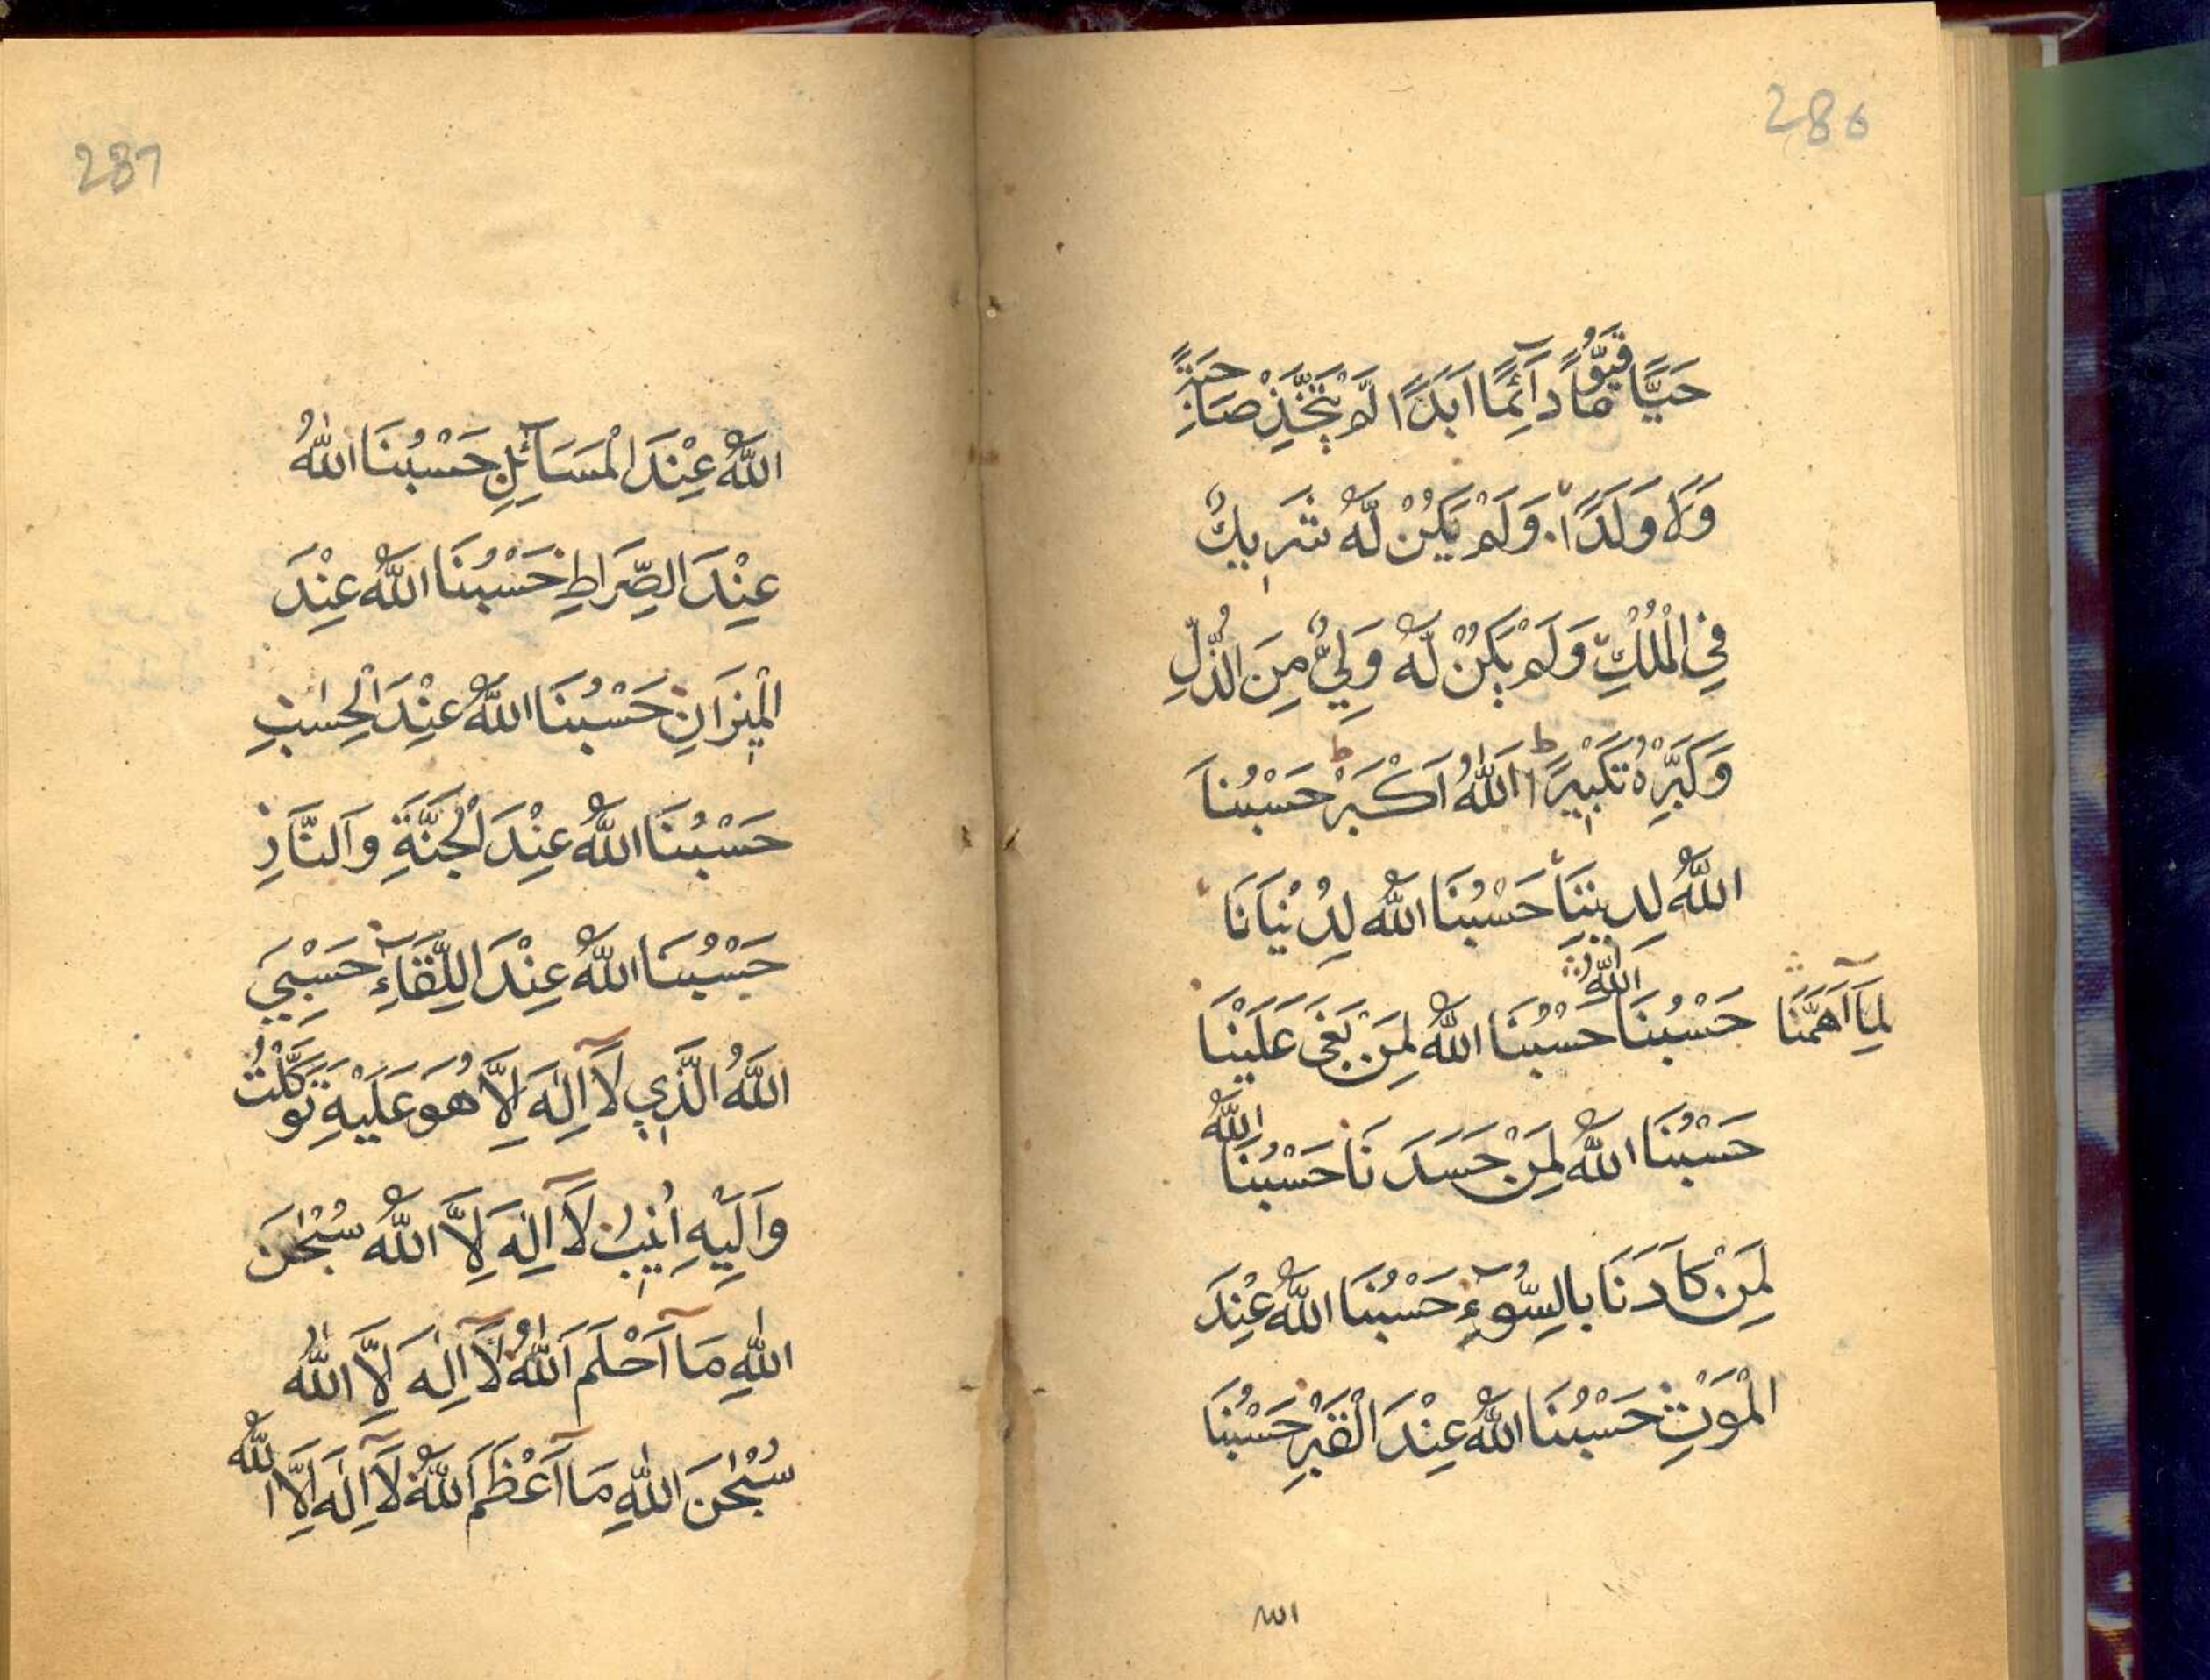 286
حَيًّا قَيُّوْمًا دَآئِمًا اَبَدًا لَمْ يَتَّخِذْ صَاحِبَةً
وَلَا وَلَدًا وَلَمْ يَكُنْ لَّهُ شَرِيكٌ
فِي الْمُلْكِ وَلَمْ يَكُنْ لَّهُ وَلِيٌّ مِنَ الذُّلِّ
وَكَبِّرْهُ تَكْبِيْرًا اَللهُ اَكْبَرْ حَسْبُنَا
اللّٰهُ لِدِيْنِنَا حَسْبُنَا اللّٰهُ لِدُنْيَانَا
حَسْبُنَا اللّٰهُ لِمَآ اَهَمَّنَا حَسْبُنَا اللّٰهُ لِمَنْ بَغٰى عَلَيْنَا
حَسْبُنَا اللّٰهُ لِمَنْ حَسَدَنَا حَسْبُنَا اللّٰهُ
لِمَنْ كَادَنَا بِالسُّوْٓءِ حَسْبُنَا اللّٰهُ عِنْدَ
الْمَوْتِ حَسْبُنَا اللّٰهُ عِنْدَ الْقَبْرِ حَسْبُنَا
الله
287
اللّٰهُ عِنْدَ الْمَسَآئِلِ حَسْبُنَا اللّٰهُ
عِنْدَ الصِّرَاطِ حَسْبُنَا اللّٰهُ عِنْدَ
الْمِيْزَانِ حَسْبُنَا اللّٰهُ عِنْدَ الْحِسٰبِ
حَسْبُنَا اللّٰهُ عِنْدَ الْجَنَّةِ وَالنَّارِ
حَسْبُنَا اللّٰهُ عِنْدَ اللِّقَآءِ حَسْبِيَ
اللّٰهُ الَّذِي لَآ اِلٰهَ اِلَّا هُوَ عَلَيْهِ تَوَكَّلْتُ
وَاِلَيْهِ اُنِيْبُ لَآ اِلٰهَ اِلَّا اللّٰهُ سُبْحٰنَ
اللّٰهِ مَآ اَحْلَمَ اللّٰهُ لَآ اِلٰهَ اِلَّا اللّٰهُ
سُبْحٰنَ اللّٰهِ مَآ اَعْظَمَ اللّٰهُ لَآ اِلٰهَ اِلَّا اللّٰهُ